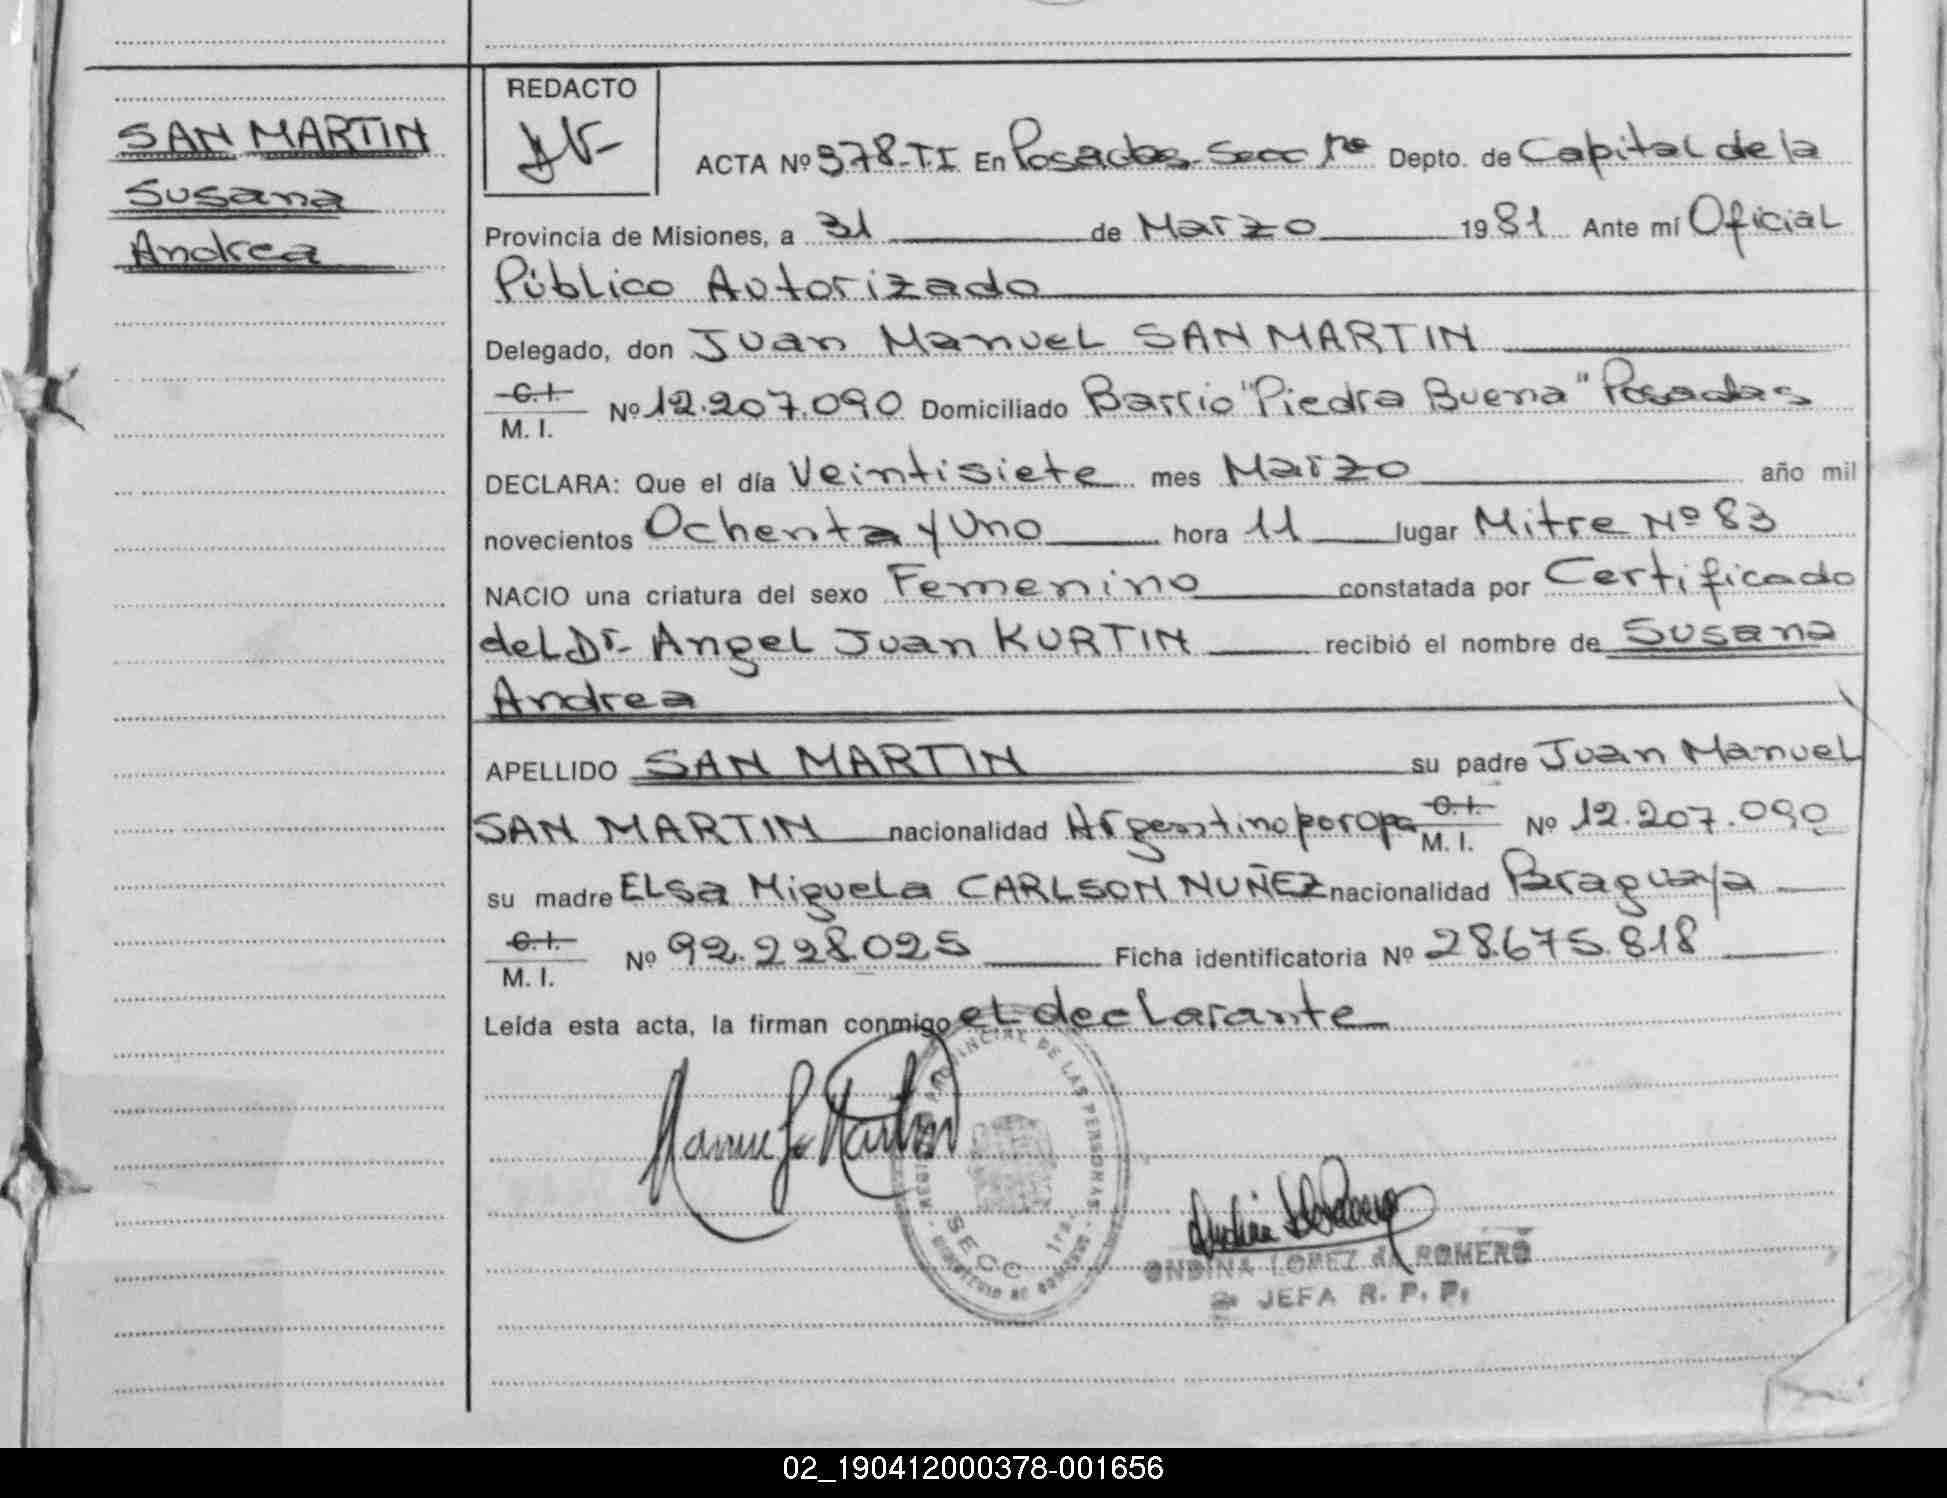 SAN MARTIN
Susana
Andrea
REDACTO
ACTA Nº 378-T.I En Posadas-Secc 1ra Depto. de Capital de la
Provincia de Misiones, a 31 de Marzo 1981 Ante mí Oficial
Público Autorizado
Delegado, don Juan Manuel SAN MARTIN
C.I.
M. I. Nº 12.207.090 Domiciliado Barrio "Piedra Buena" Posadas
DECLARA: Que el día Veintisiete mes Marzo año mil
novecientos Ochenta y Uno hora 11 lugar Mitre Nº 83
NACIO una criatura del sexo Femenino constatada por Certificado
del Dr. Angel Juan KURTIN recibió el nombre de Susana
Andrea
APELLIDO SAN MARTIN su padre Juan Manuel
SAN MARTIN nacionalidad Argentino por opc C.I. M. I. Nº 12.207.090
su madre Elsa Miguela CARLSON NUÑEZ nacionalidad Paraguaya
C.I.
M. I. Nº 92.228.025 Ficha identificatoria Nº 28.675.818
Leída esta acta, la firman conmigo el declarante
PROVINCIAL DE LAS PERSONAS
SECC 1ra.
ONDINA LOPEZ de ROMERO
JEFA R. P. P.
02_190412000378-001656